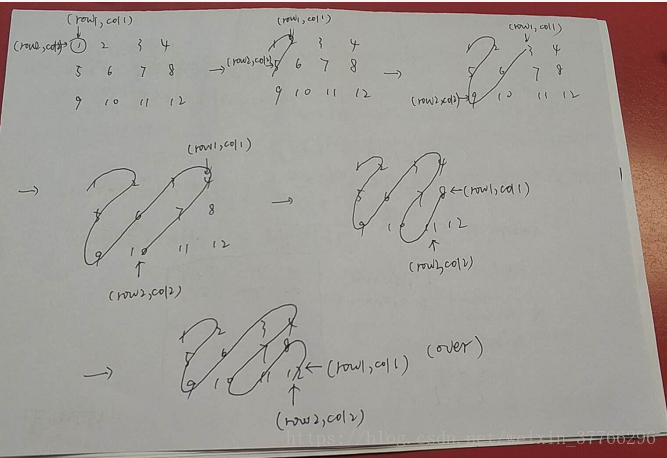 (row1,col1) (row1,col1) (row1,col1)
(row2,col2)→ 1 2 3 4
5 6 7 8
9 10 11 12
→
(row2,col2) 1 2 3 4
5 6 7 8
9 10 11 12
→
1 2 3 4
5 6 7 8
(row2,col2)→ 9 10 11 12
(row1,col1)
→
1 2 3 4
5 6 7 8
9 10 11 12
↑
(row2,col2)
→
1 2 3 4
5 6 7 8 ←(row1,col1)
9 10 11 12
↑
(row2,col2)
→
1 2 3 4
5 6 7 8
9 10 11 12 ←(row1,col1) (over)
↑
(row2,col2)
https://blog.csdn.net/weixin_37766296